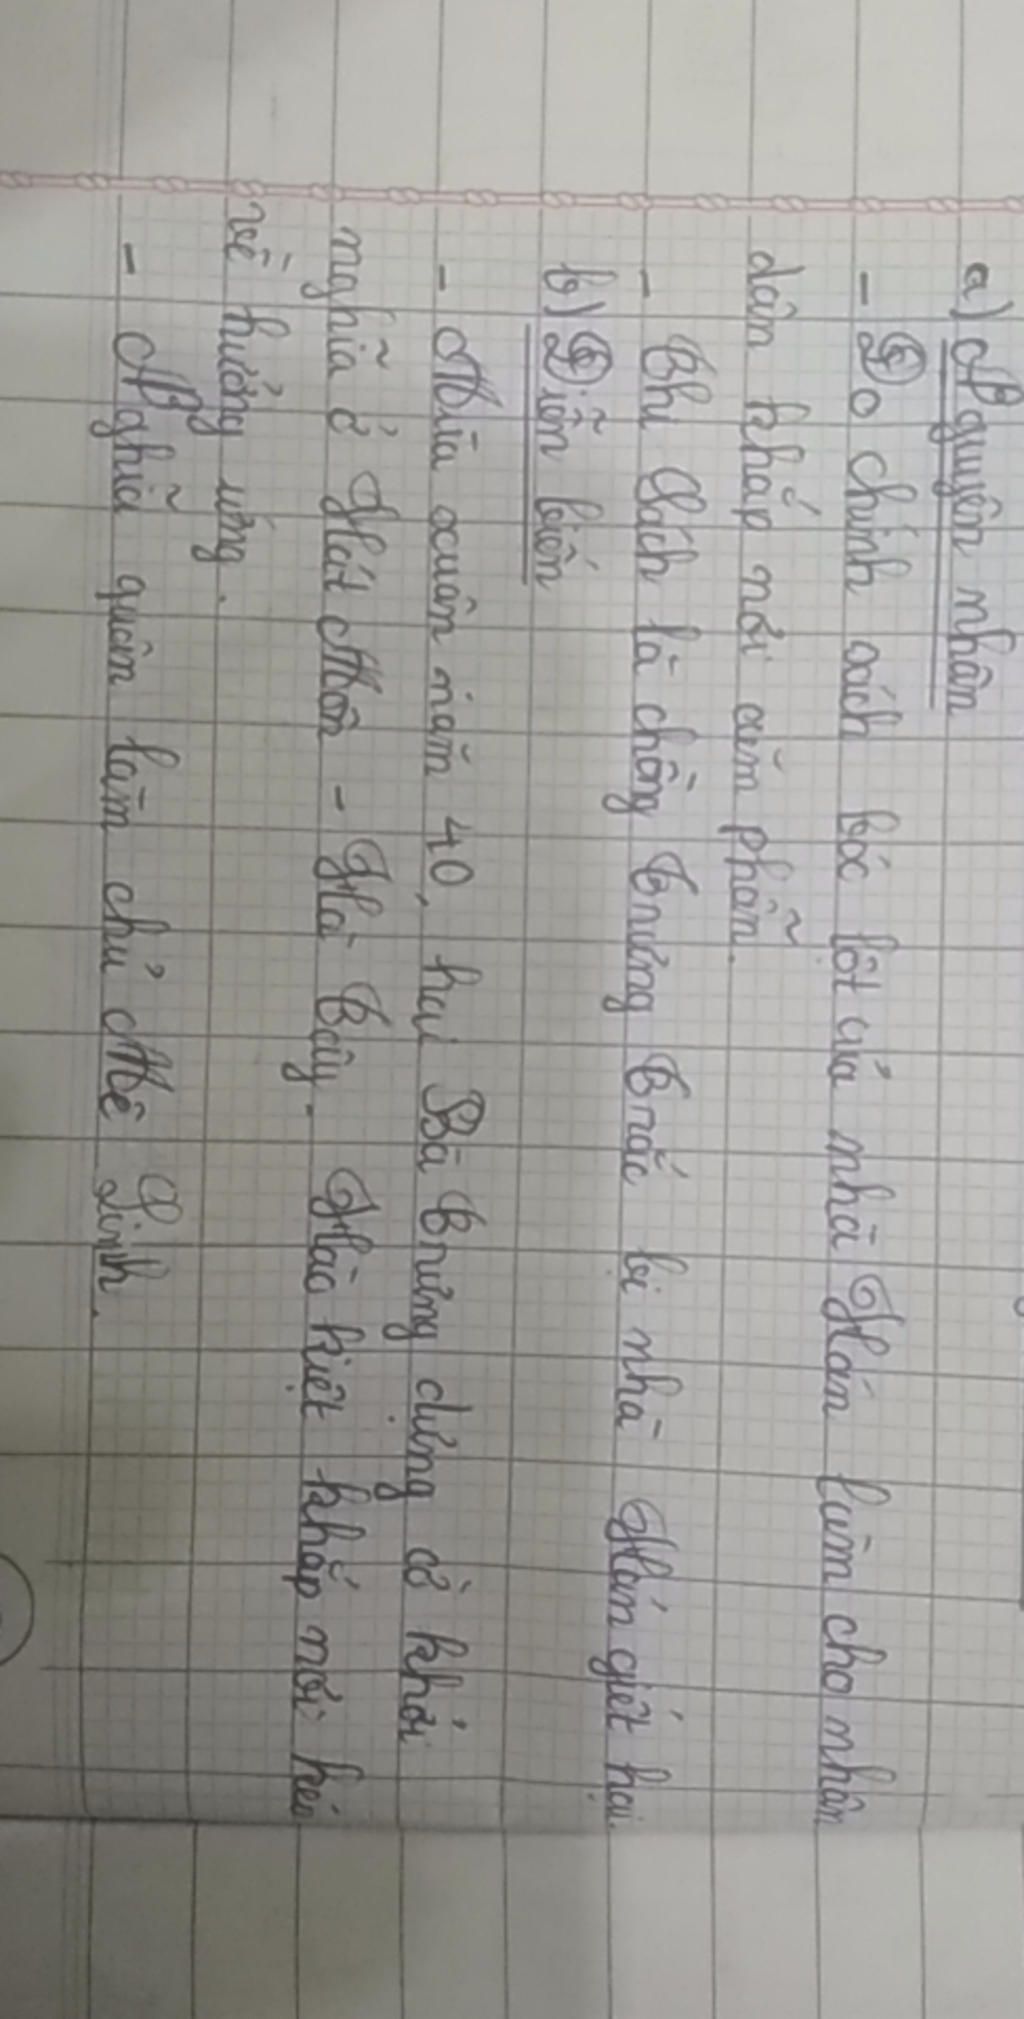 a) Nguyên nhân
- Do chính sách bóc lột của nhà Hán làm cho nhân
dân khắp nơi căm phẫn.
- Thi Sách là chồng Trưng Trắc bị nhà Hán giết hại.
b) Diễn biến
- Mùa xuân năm 40, hai Bà Trưng dựng cờ khởi
nghĩa ở Hát Môn - Hà Tây. Hào kiệt khắp nơi kéo
về hưởng ứng.
- Nghĩa quân làm chủ Mê Linh.